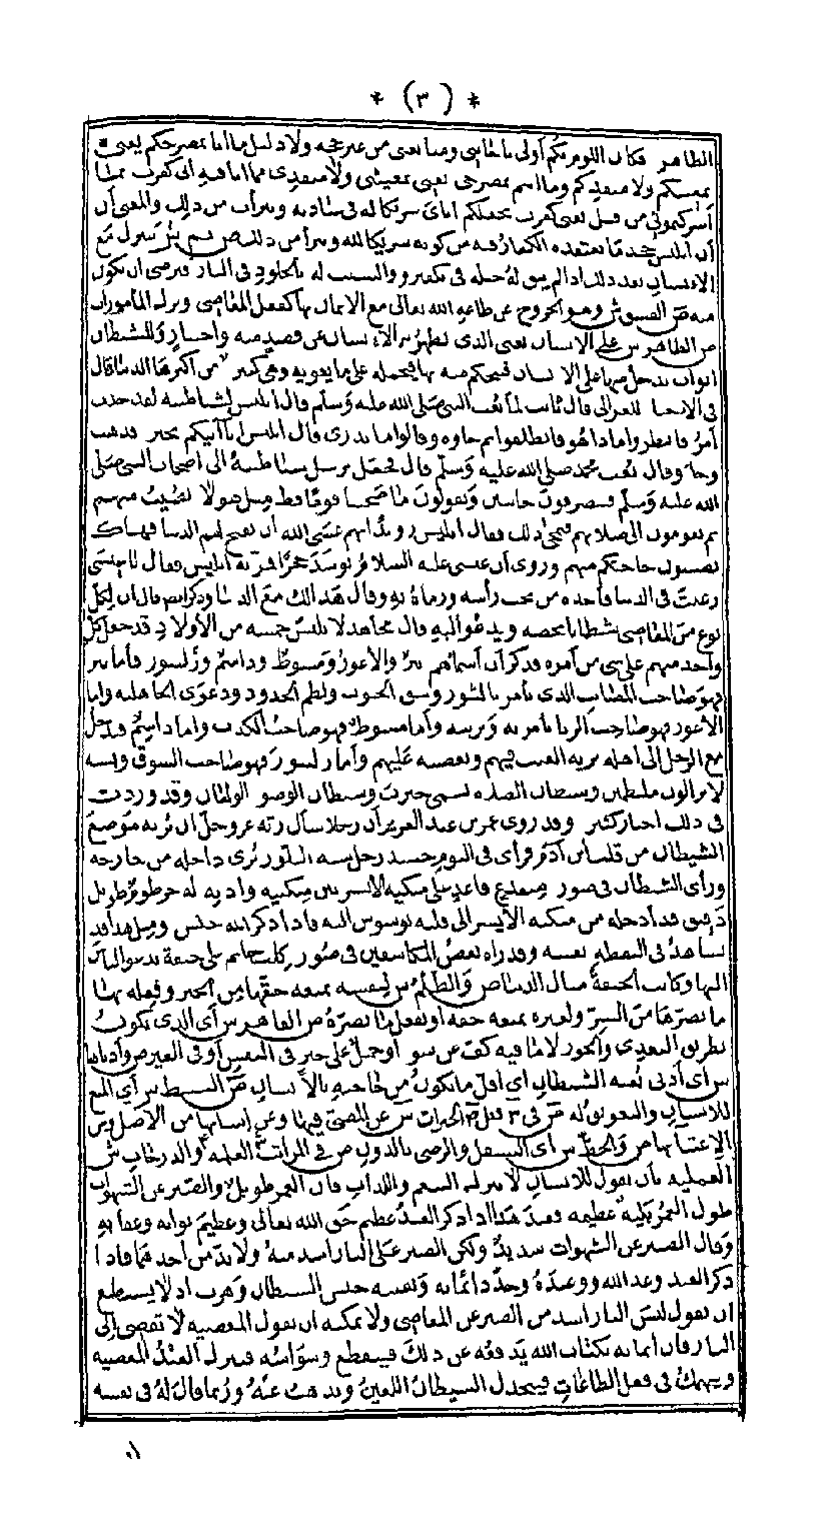 * (٣) *
الظاهر فكان اللوم بكم أولى باخامى ومما نعى من غير حجه ولا دليل ما انا بمصرخكم يعنى
بمغيثكم ولا منقذكم وما انتم بمصرخى يعنى بمغيثى ولا منقذى مما انا فيه انى كفرت بما
أشركتمونى من قبل يعنى كفرت بجعلكم اياى شريكا له فى عبادته وتبرأت من ذلك والمعنى أن
أن ابليس جحد ما يعتقده الكفار فيه من كونه شريكا لله وتبرأ من ذلك ص ثم ش تنزل مع
الانسان بعد ذلك اذا لم يبق له حيله فى تكفيره والتسبب له بالخلود فى النار فرضى ان يكون
منه ص الفسوق ش وهو الخروج عن طاعه الله تعالى مع الايمان بها كفعل المعاصى وترك المأمورات
ص الظاهر ش على الانسان يعنى الذى يظهر من الانسان عن قصد منه واختيار وللشيطان
ابواب يدخل منها على الانسان فيحكم منه بها فيحمله على ما يغويه وهى كثيره من أكبرها الدنيا قال
فى الاحيا للغزالى قال ثابت لما بعث النبى صلى الله عليه وسلم قال ابليس لشياطينه لقد حدث
أمر فانظروا ماذا هو فانطلقوا ثم جاوه وقالوا ما ندرى قال ابليس انا آتيكم بخبر فذهب
وجاء وقال بعث محمد صلى الله عليه وسلم قال فجعل يرسل شياطينه الى اصحاب النبى صلى
الله عليه وسلم فينصرفون خائبين ويقولون ما صحبنا قوما قط مثل هولا نصيب منهم
ثم يقومون الى صلاتهم فيمحى ذلك فقال ابليس رويدا بهم عسى الله ان يفتح لهم الدنيا فهناك
تصيبون حاجتكم منهم وروى أن عيسى عليه السلام توسد حجرا فمر به ابليس فقال يا عيسى
رغبت فى الدنيا فأخذه من تحت رأسه ورماه به وقال هذا لك مع الدنيا وذكر انه قال ان لكل
نوع من المعاصى شيطانا يخصه ويدعو اليه قال مجاهد لابليس خمسه من الأولاد قد جعل كل
واحد منهم على شى من أمره فذكر أن أسماهم ثبر والأعور ومسوط وداسم وزلنبور فأما ثبر
فهو صاحب المصايب الذى يأمر بالثبور وشق الجيوب ولطم الخدود ودعوى الجاهليه واما
الأعور فهو صاحب الزنا يأمر به ويزينه وأما مسوط فهو صاحب الكذب واما داسم فيدخل
مع الرجل الى أهله يريه العيب فيهم ويغضبه عليهم وأما زلنبور فهو صاحب السوق وبسببه
لا يزالون ملتطمين وشيطان الصلاه يسمى خنزب وشيطان الوضو الولهان وقد وردت
فى ذلك أخبار كثيره وقد روى عمر بن عبد العزيز أن رجلا سأل ربه عز وجل أن يريه موضع
الشيطان من قلب ابن آدم فرأى فى النوم جسد رجل شبه البلور يرى داخله من خارجه
ورأى الشيطان فى صورة ضفدع قاعد على منكبه الأيسر بين منكبيه وأذنه له خرطوم طويل
دقيق قد أدخله من منكبه الأيسر الى قلبه يوسوس اليه فاذا ذكر الله خنس ومثل هذا قد
يشاهد فى اليقظه بعينه وقد رآه بعض المكاشفين فى صورة كلب جاثم على جيفة يدعو الناس
اليها وكانت الجيفة مثال الدنيا ص والظلم ش لنفسه بمنعه حقها من الخير وفعله بها
ما يضرها من الشر ولغيره بمنعه حقه أو بفعل ما يضره ص القاهر ش أى الذى يكون
بطريق التعدى والجور لا ما فيه كف عن سوء أو حمل على خير فى النفس أو فى الغير ص وأدناها
ش أى أدنى نفسه الشيطان أى أقل ما يكون من قناعته بالانسان ص التثبيط ش أى المنع
للانسان والتعويق له ص فى ش فعل ص الخيرات ش عن المضى فيها وعن اتيانها من الأصل وعن
الاعتنا بها ص والحظ ش أى التسفل والرضى بالدون ص فى المراتب ش العلمه والدرجات ش
العمليه بأن يقول للانسان لا تترك التنعم واللذات فان العمر طويل والصبر عن الشهوات
طول العمر بليه عظيمه فعند هذا اذا ذكر العبد عظيم حق الله تعالى وعظيم ثوابه وعقابه
وقال الصبر عن الشهوات شديد ولكن الصبر على النار أشد منه ولا بد من أحدهما فاذا
ذكر العبد وعد الله ووعيده وجدد ايمانه ويقينه خنس الشيطان وهرب اذ لا يستطيع
ان يقول ليس النار أشد من الصبر عن المعاصى ولا يمكنه ان يقول المعصيه لا تفضى الى
النار فان ايمانه بكتاب الله يدفعه عن ذلك فينقطع وسواسه فيترك العبد المعصيه
وينهمك فى فعل الطاعات فينخذل الشيطان اللعين ويذهب عنه وربما قال له فى نفسه